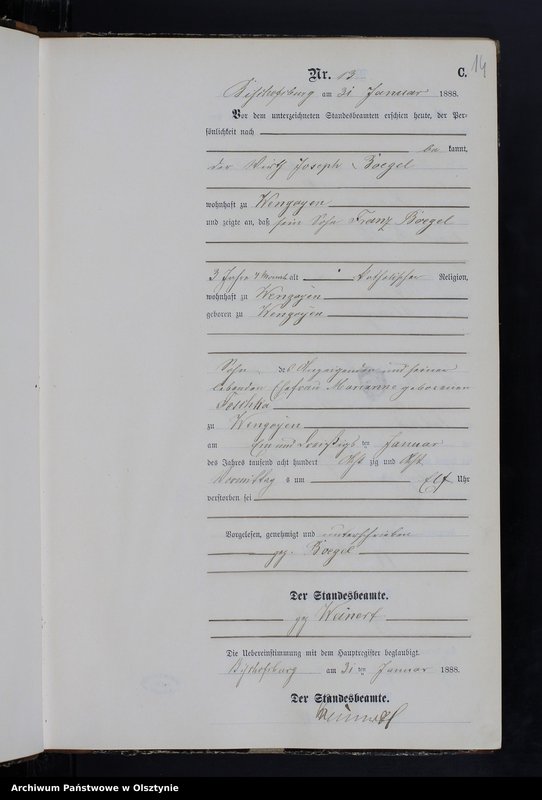 Nr. 13 C. 14
Bischofsburg am 31 Januar 1888.
Vor dem unterzeichneten Standesbeamten erschien heute, der Per-
sönlichkeit nach
be kannt,
der Wirth Joseph Boegel
wohnhaft zu Wengoyen
und zeigte an, daß sein Sohn Franz Boegel
3 Jahre 4 Monat alt katholischer Religion,
wohnhaft zu Wengoyen
geboren zu Wengoyen
Sohn des Anzeigenden und seiner
lebenden Ehefrau Marianne geborenen
zu Wengoyen
am Ein und dreißigsten Januar
des Jahres tausend acht hundert Acht zig und Acht
Vormittag s um Elf Uhr
verstorben sei
Vorgelesen, genehmigt und unterschrieben
gez. Boegel
Der Standesbeamte.
gez Weinert
Die Uebereinstimmung mit dem Hauptregister beglaubigt.
Bischofsburg am 31 ten Januar 1888.
Der Standesbeamte.
Archiwum Państwowe w Olsztynie